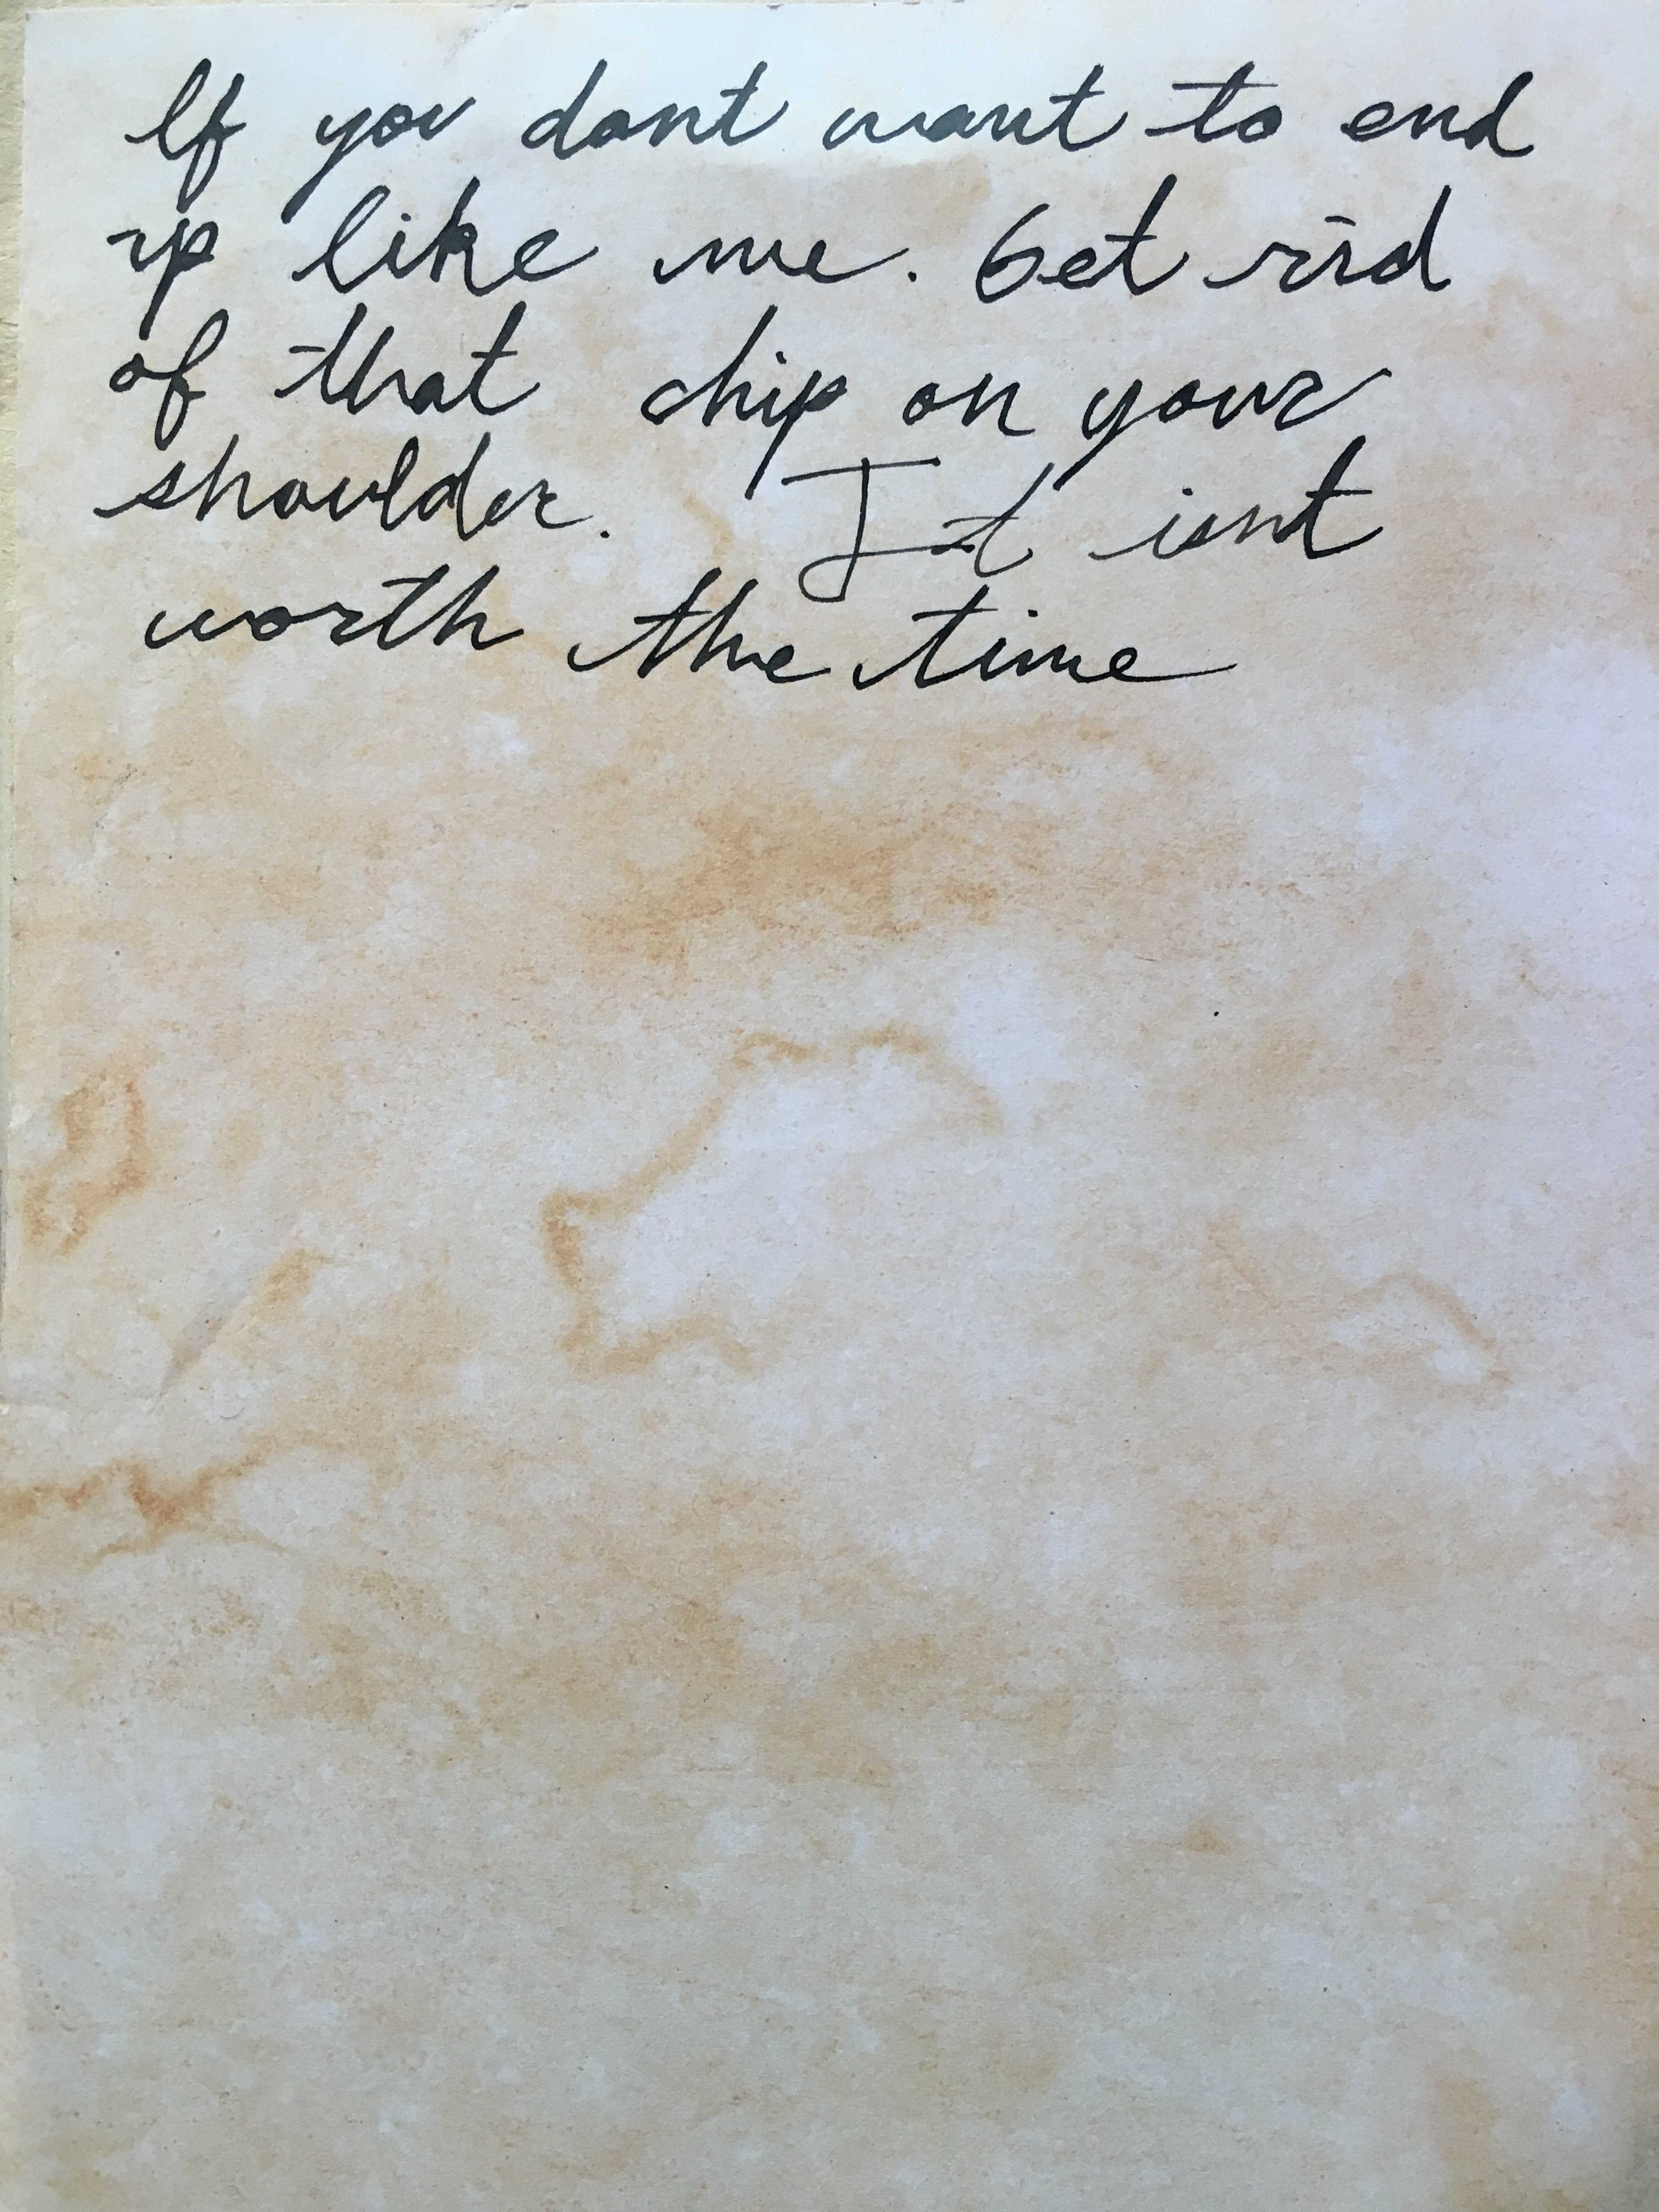 If you dont want to end
up like me. Get rid
of that chip on your
shoulder. It isnt
worth the time